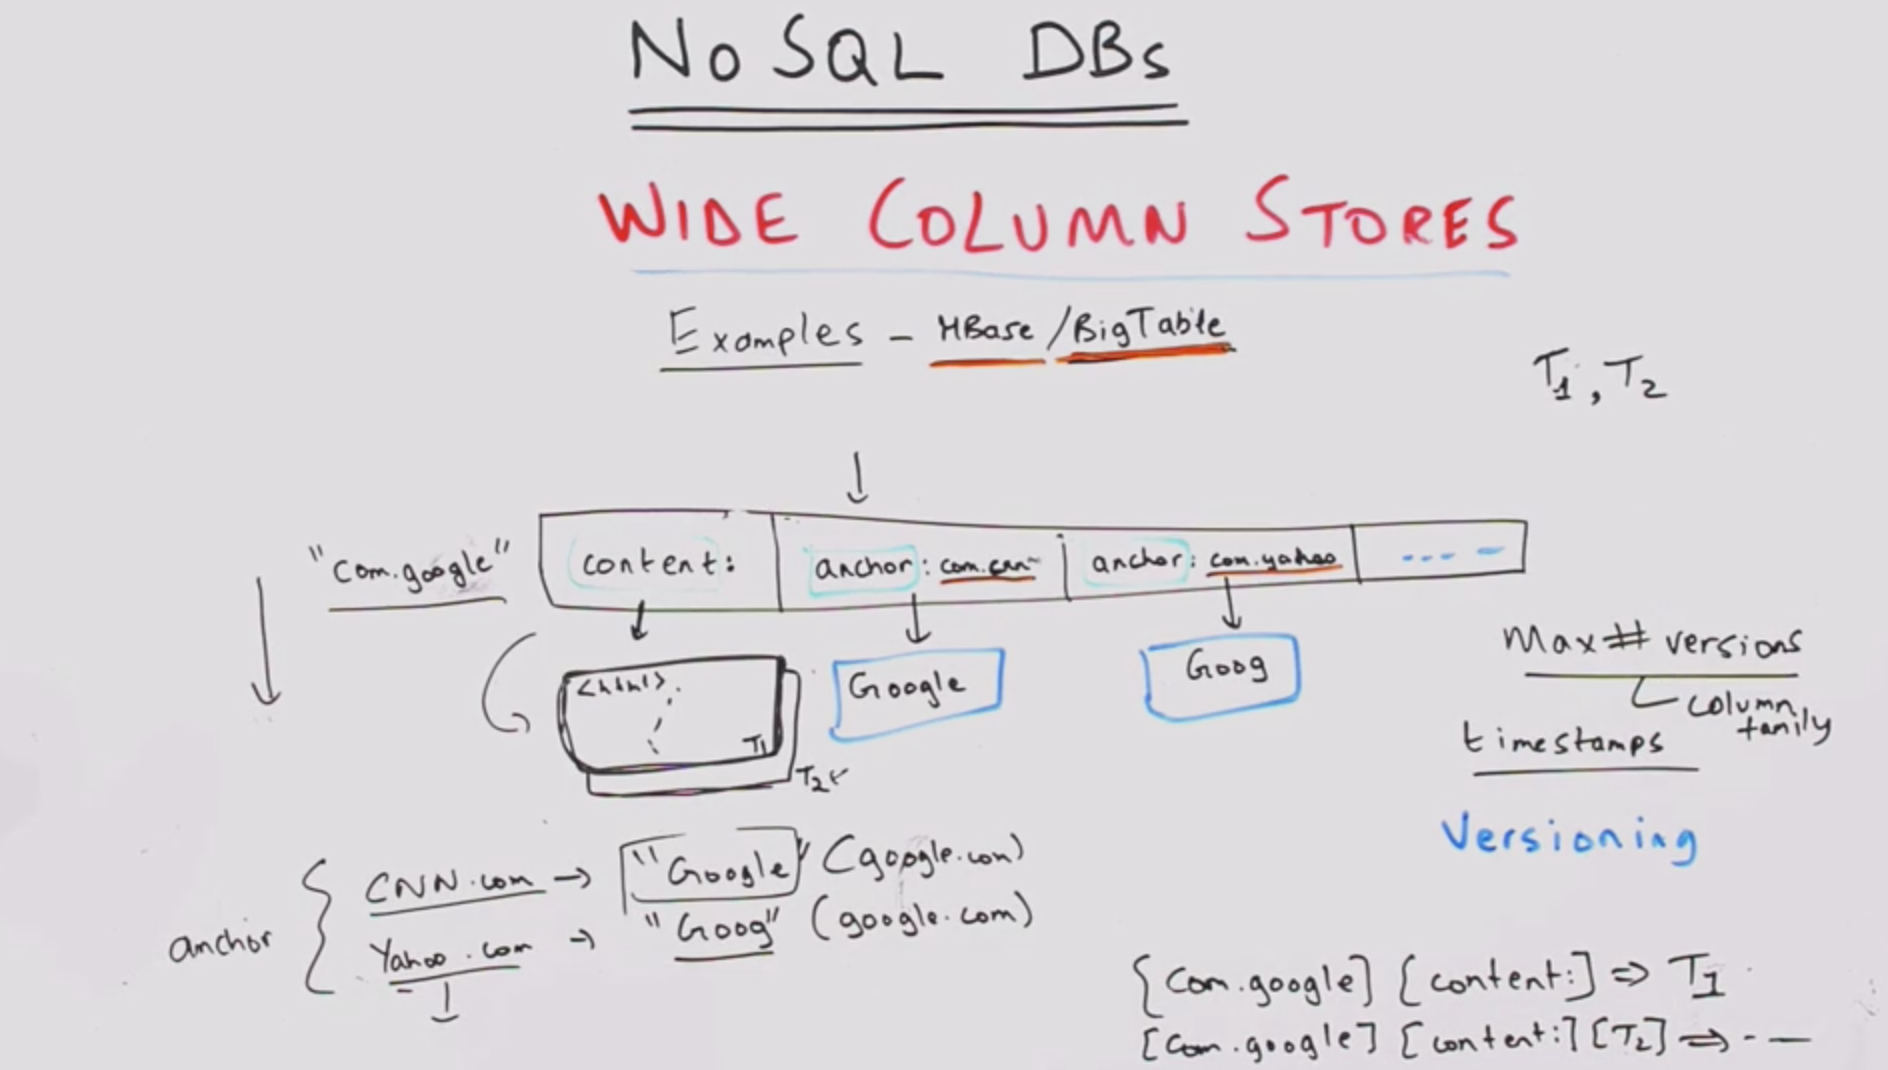 NoSQL DBs
WIDE COLUMN STORES
Examples - HBase / BigTable
T1, T2
"com.google"
content:
anchor: com.cnn
anchor: com.yahoo
---- 
<html>
T1
T2
Google
Goog
Max # versions
column family
timestamps
Versioning
anchor { CNN.com → "Google" (google.com)
Yahoo.com → "Goog" (google.com)
[com.google] [content:] ⇒ T1
[com.google] [content:] [T2] ⇒ - —